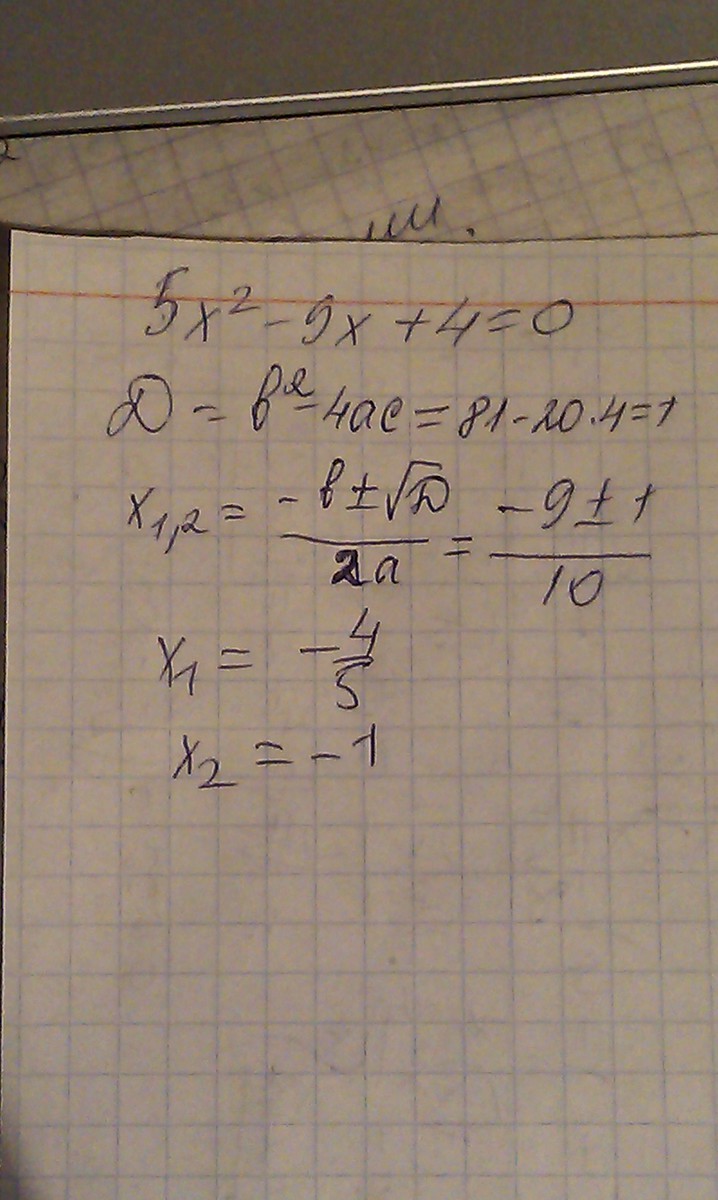 5x² - 9x + 4 = 0
D = b² - 4ac = 81 - 20·4 = 1
x₁,₂ = (-b ± √D)/(2a) = (-9 ± 1)/10
x₁ = -4/5
x₂ = -1